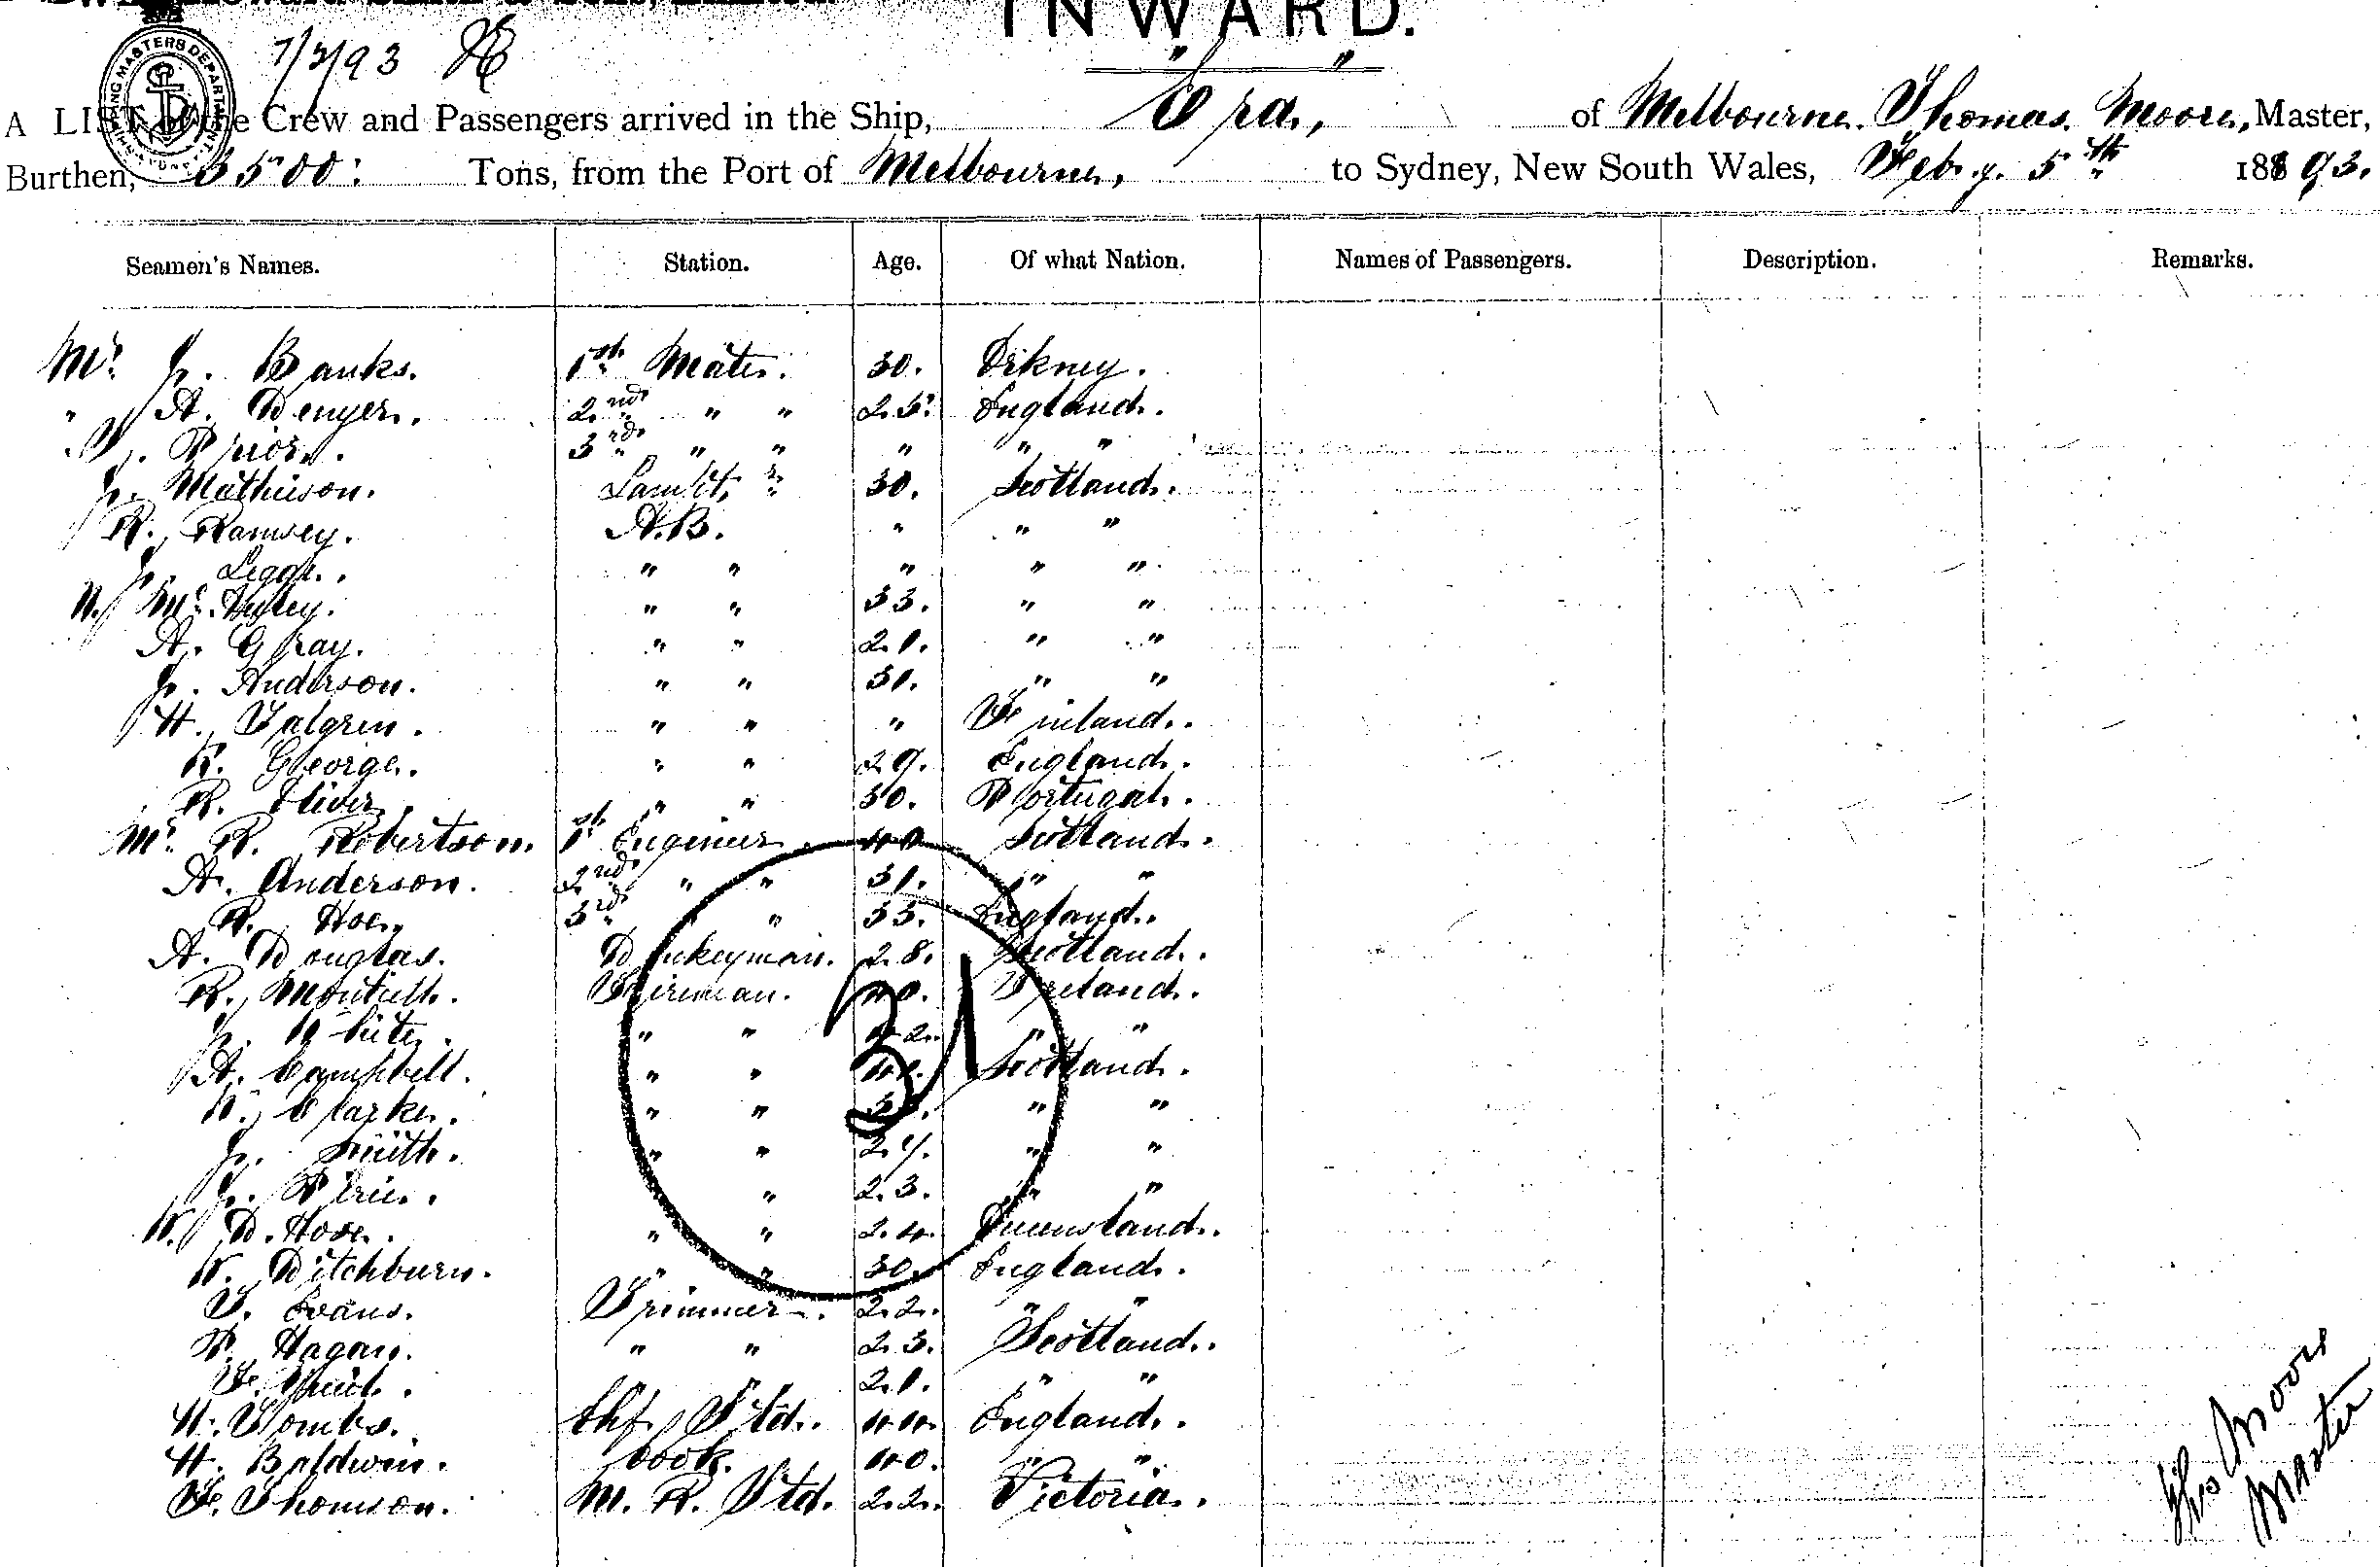 INWARD.
7/2/93
A LIST of the Crew and Passengers arrived in the Ship, Era, of Melbourne. Thomas Moore, Master,
Burthen, 3500: Tons, from the Port of Melbourne, to Sydney, New South Wales, Feby. 5th 1893.
Seamen's Names. Station. Age. Of what Nation. Names of Passengers. Description. Remarks.
Mr J. Banks. 1st Mate. 30. Orkney.
" A. Denyer. 2nd " " 25. England.
Prior. 3rd " " " " "
J. Mathieson. Lamptr. 30. Scotland.
R. Ramsey. A.B. " " "
J. Legge. " " " " "
N. Mc " " 33. " "
A. Gray. " " 21. " "
J. Anderson. " " 31. " "
H. Falgren. " " " Finland.
K. George. " " 29. England.
R. Oliver. " " 30. Portugal.
Mr R. Robertson. 1st Engineer. 40 Scotland.
A. Anderson. 2nd " " 31. " "
R. Hoe. 3rd " " 33. England.
A. Douglas. Donkeyman. 28. Scotland.
R. Montieth. Fireman. 40. Ireland.
J. White. " " 42. " "
A. Campbell. " " Scotland.
W. Clarke. " " " "
J. Smith. " " 27. " "
J. Pirie. " 23. " "
W. D. Hose. " " 24. Queensland.
W. Ditchburn. " " 30. England.
T. Evans. Trimmer. 22. " "
P. Hagan. " " 23. Scotland.
F. " " 21. " "
H. Tombs. Chf. Std. 44. England.
H. Baldwin. Cook. 40. " "
F. Thomson. M. R. Std. 22. Victoria.
31
Thos Moore
Master